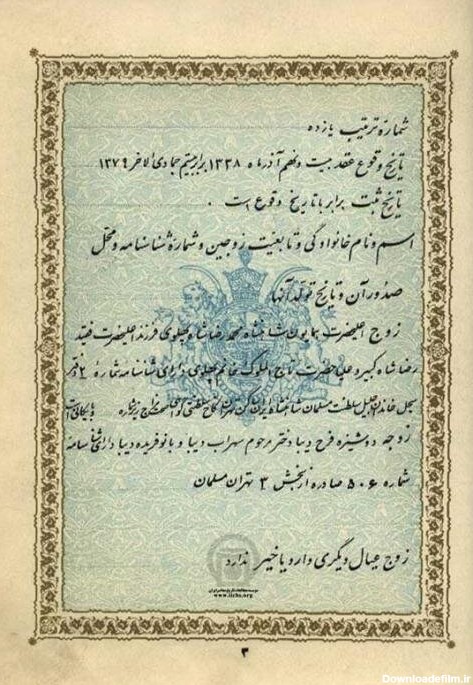 شماره ترتیب یازده
تاریخ وقوع عقد بیست ونهم آذرماه ۱۳۳۸ برابر بیستم جمادی الاخر ۱۳۷۹
تاریخ ثبت برابر با تاریخ وقوع است .
اسم ونام خانوادگی وتابعیت زوجین وشماره شناسنامه ومحل
صدور آن وتاریخ تولد آنها
زوج اعلیحضرت همایون شاهنشاه محمد رضا شاه پهلوی فرزند اعلیحضرت فقید
رضا شاه کبیر و علیاحضرت تاج الملوک خانم پهلوی دارای شناسنامه شماره ۲ دفتر
سجل خاندان جلیل سلطنت مسلمان شاهنشاه ایران ساکن تهران
زوجه دوشیزه فرح دیبا دختر مرحوم سهراب دیبا و بانو فریده دیبا دارای شناسنامه
شماره ۵۰۶ صادره از بخش ۳ تهران مسلمان
زوج عیال دیگری دارد یا خیر ندارد
موسسه مطالعات تاریخ معاصر ایران
www.iichs.org
۳
Downloadefilm.ir